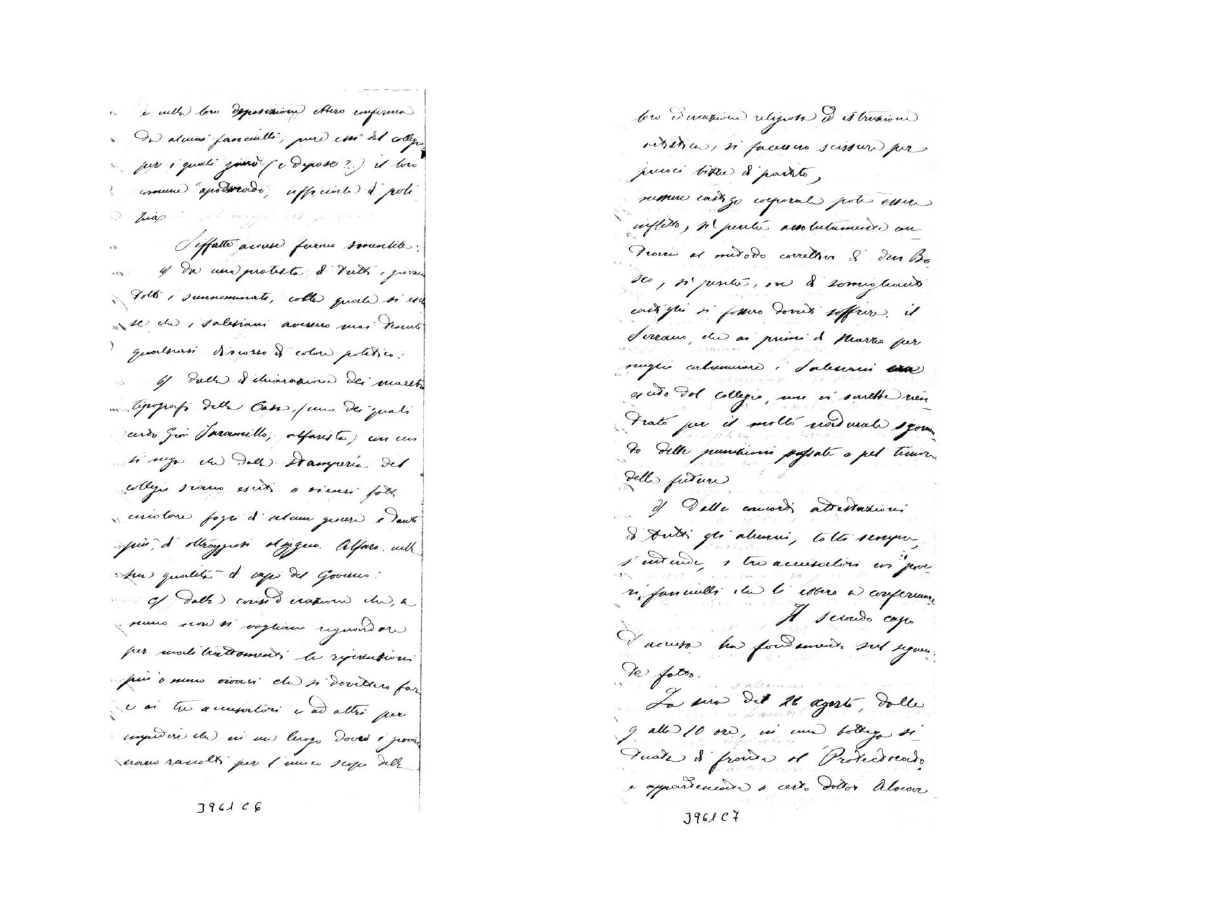 e nella loro deposizione ebbero conferma
da alcuni fanciulli, pure essi del collegio
per i quali giurò (e depose?) il loro
comune apoderado, ufficiale di poli
zia
Siffatte accuse furono smentite:
a) da una protesta di tutti i giovani
tolti i sunnominati, colla quale si esclu
se che i salesiani avessero mai tenuto
qualsiasi discorso di colore politico:
b) dalla dichiarazione dei maestri
tipografi della Casa (uno dei quali
certo Gio Jaramillo, alfarista) con cui
si nega che dalla stamperia del
collegio siano esciti o siensi fatti
circolare fogli di alcun genere e tanto
più di oltraggiosi al signor Alfaro nella
sua qualità di capo del Governo:
c) dalla considerazione che, a
meno non si vogliano riguardare
per maltrattamenti le riprensioni
più o meno vivaci che si dovettero fare
e ai tre accusatori e ad altri per
impedire che in un luogo dove i giovani
erano raccolti per l'unico scopo della
J961C6
loro educazione religiosa ed istruzione
artistica, si facessero scissure per
picciole bizze di partito,
nessun castigo corporale potè essere
inflitto, sì perchè assolutamente con
trario al metodo correttivo di don Bo
sco, sì perchè, se di somiglianti
castighi si fossero dovuti soffrire, il
Serrano, che ai primi di Marzo per
meglio calunniare i Salesiani era
uscito dal collegio, non vi sarebbe rien
trato per il molto naturale sgomen
to delle punizioni passate o pel timore
delle future
d) Dalle concordi attestazioni
di tutti gli alunni, tolti sempre,
s'intende, i tre accusatori coi pove
ri fanciulli che li ebbero a confermare.
Il secondo capo
d'accusa ha fondamento sul seguen
te fatto.
La sera del 26 agosto, dalle
9 alle 10 ore, in una bottega si
tuata di fronte al Protectorado
e appartenente a certo dottor Alcivar
J961C7